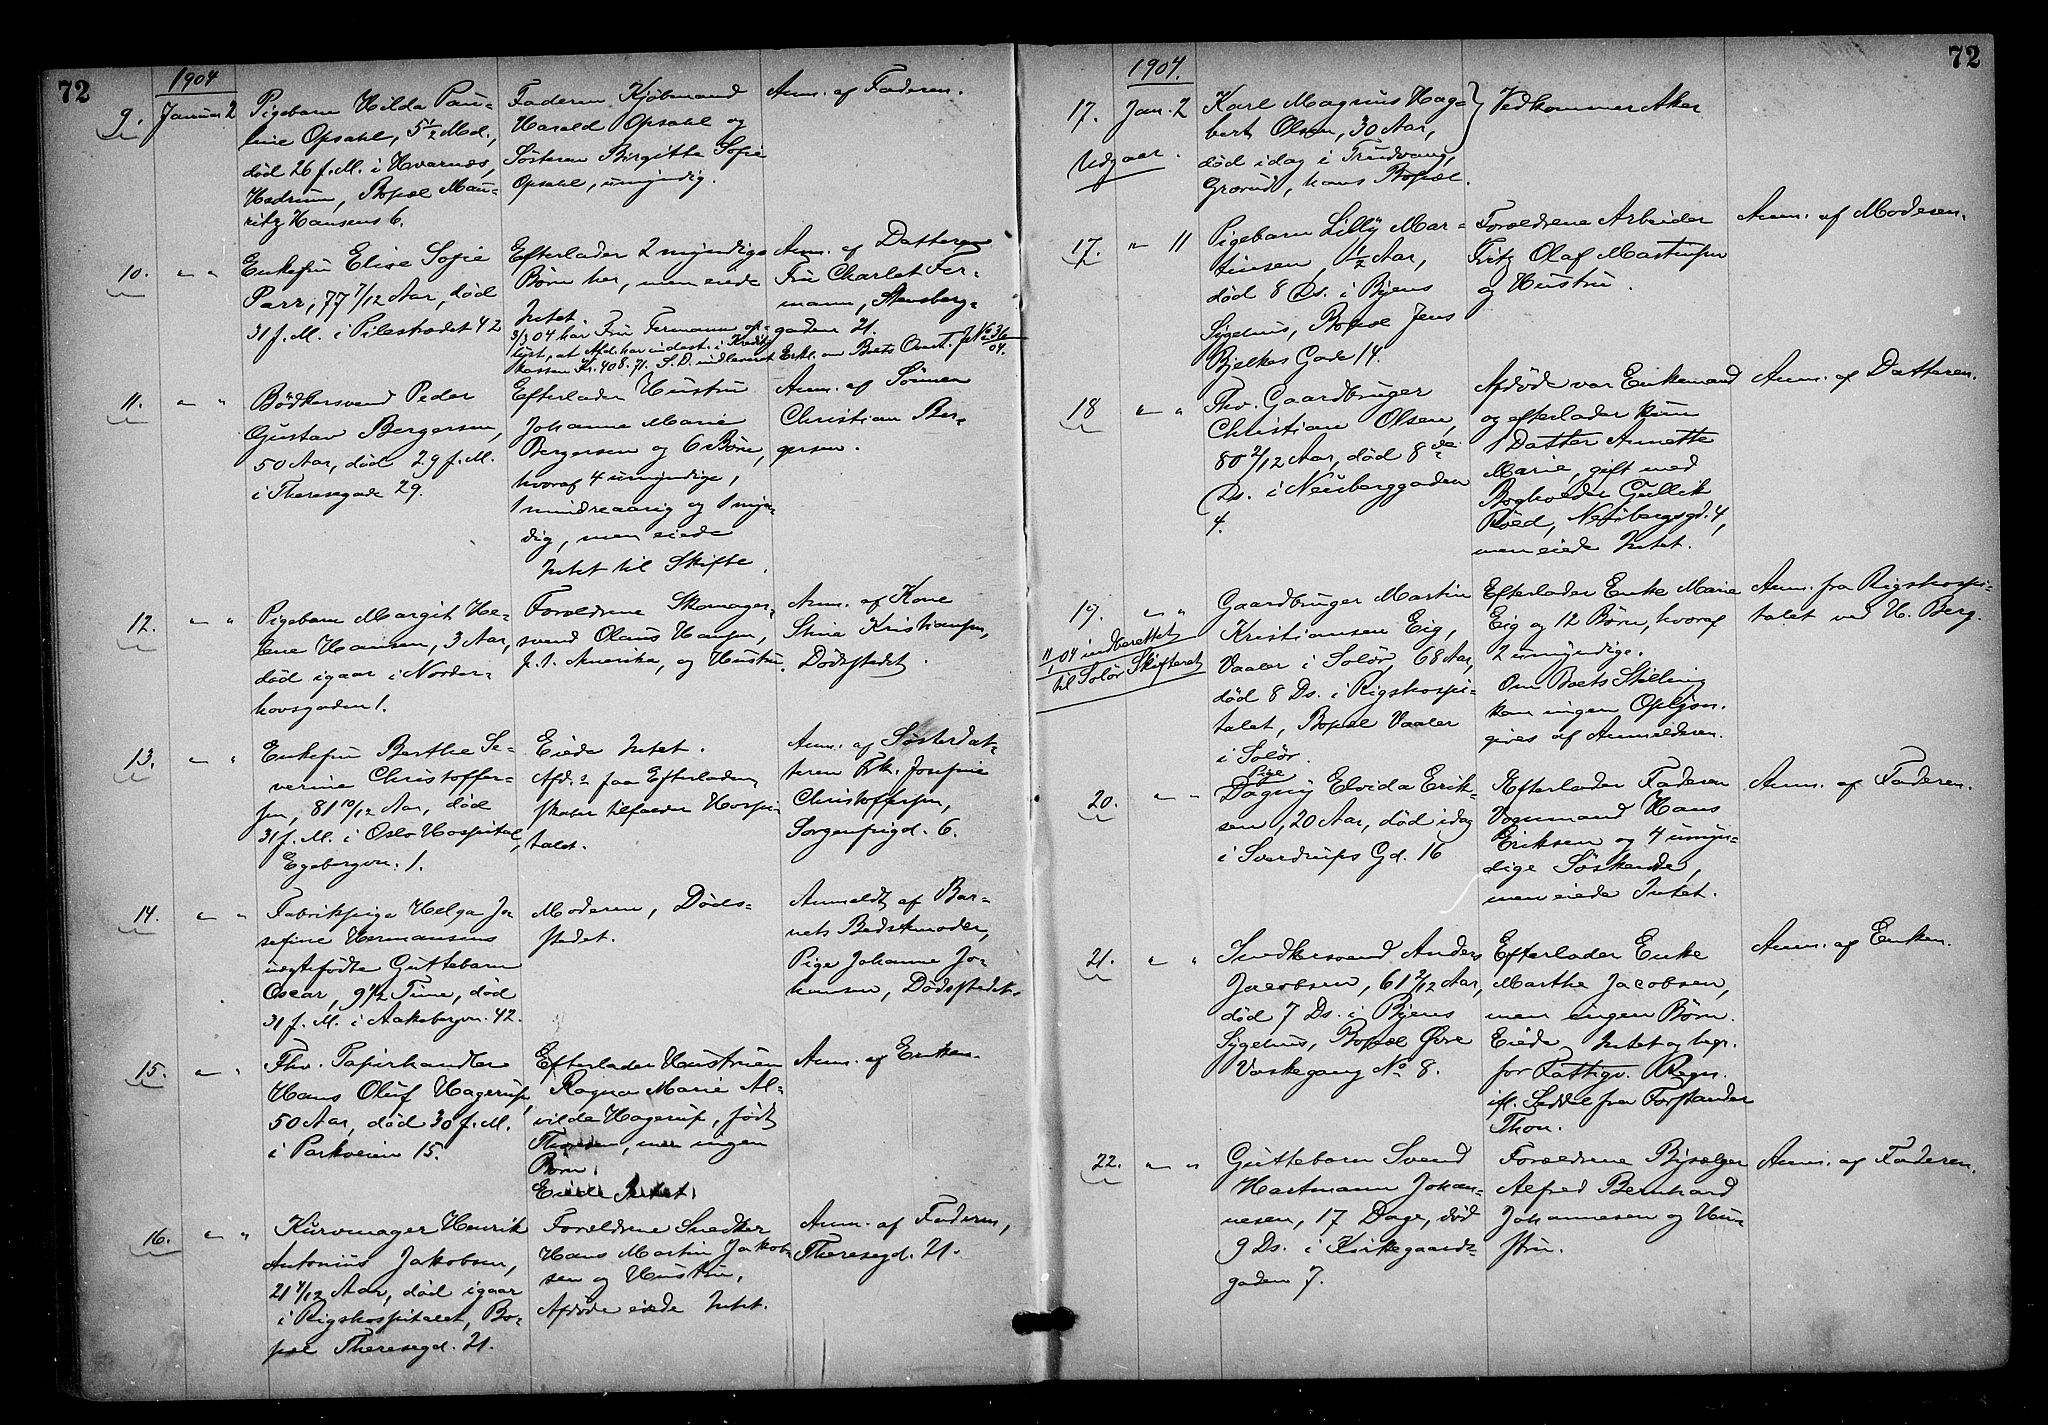 72
1904
9.
Januar 2
Pigebarn Hilda Pau-
line Opsahl, 5 1/2 Md.,
død 26 f. M. i Hvarnæs,
Hedrum, Bopæl Mau-
ritz Hansens 6.
Faderen Kjøbmand
Harald Opsahl og
Søsteren Birgitte Sofie
Opsahl, umyndig.
Anm. af Faderen.
10.
" "
Enkefru Elise Sofie
Parr, 77 7/12 Aar, død
31 f. M. i Pilestrædet 42
Efterlader 2 myndige
Børn her, men eiede
Intet
3/3 04 har Fru Fermann op-
lyst, at Afd. har indest. i Kredit
kassen Kr. 408.71. S. D. indleveret
Anm. af Datteren
Fru Charlet Fer-
mann, Stensberg-
gaden 21.
Erkl. om Boets Overt. J No 36/04.
11.
" "
Bødkersvend Peder
Gustav Bergersen,
50 Aar, død 29 f. M.
i Theresegade 29.
Efterlader Hustru
Johanne Marie
Bergersen og 6 Børn,
hvoraf 4 umyndige,
1 mindreaarig og 1 myn-
dig, men eiede
Intet til Skifte.
Anm. af Sønnen
Christian Ber-
gersen.
12.
" "
Pigebarn Margit He-
lene Hansen, 3 Aar,
død igaar i Norder-
hovsgaden 1.
Forældrene Skomager-
svend Olaus Hansen,
f. t. Amerika, og Hustru.
Anm. af Kone
Stina Kristiansen,
Dødsstedet.
13.
" "
Enkefru Berthe Se-
verine Christoffer-
sen, 81 10/12 Aar, død
31 f. M. i Oslo Hospital,
Egebergvn. 1.
Eiede Intet.
Afd.s faa Efterladen-
skaber tilfalder Hospi-
talet.
Anm. af Søsterdat-
teren Frk. Josefine
Christoffersen,
Sorgenfrigd. 6.
14.
" "
Fabrikpige Helga Jo
sefine Hermansens
uægtefødte Guttebarn
Oscar, 9 1/2 Time, død
31 f. M. i Aakebergvn. 42.
Moderen, Døds-
stedet.
Anmeldt af Bar-
nets Bedstemoder,
Pige Johanne Jo-
hansen, Dødsstedet.
15.
" "
Fhv. Papirhandler
Hans Oluf Hagerup,
50 Aar, død 30 f. M.
i Parkveien 15.
Efterlader Hustruen
Ragna Marie Al-
vilde Hagerup, født
men ingen
Børn.
Eiede Intet.
Anm. af Enken.
16.
" "
Kurvmager Henrik
Antonius Jakobsen,
21 4/12 Aar, død igaar
i Rigshospitalet, Bo-
pæl Theresegd. 21.
Forældrene Snedker
Hans Martin Jakob-
sen og Hustru,
Afdøde eiede Intet.
Anm. af Faderen,
Theresegd. 21.
72
1904.
17.
Udgaar.
Jan. 2
Karl Magnus Hag-
bert Olsen, 30 Aar,
død idag i Trudvang,
Grorud, hans Bopæl.
Vedkommer Aker
17.
" 11
Pigebarn Lilly Mar-
tinsen, 1/2 Aar,
død 8 Ds. i Byens
Sygehus, Bopæl Jens
Bjelkes Gade 14.
Forældrene Arbeider
Fritz Olaf Martinsen
og Hustru.
Anm. af Moderen.
18
" "
Fhv. Gaardbruger
Christian Olsen,
80 2/12 Aar, død 8de
Ds. i Neuberggaden
4.
Afdøde var Enkemand
og efterlader kun
1 Datter Annette
Marie, gift med
Bogholder Gullik
Røed, Neubergsgd. 4,
men eiede Intet.
Anm. af Datteren.
19.
11/1 04 indberettet
til Solør Skifteret
" "
Gaardbruger Martin
Kristiansen Eig,
Vaaler i Solør, 68 Aar,
død 8 Ds. i Rigshospi-
talet, Bopæl Vaaler
i Solør.
Efterlader Enke Marie
Eig og 12 Børn, hvoraf
2 umyndige.
Om Boets Stilling
kan ingen Oplysn.
gives af Anmelderen.
Anm. fra Rigshospi-
talet ved H. Berg.
20.
" "
Pige
Dagny Elvida Erik-
sen, 20 Aar, død idag
i Sverdrups Gd. 16
Efterlader Faderen
Vognmand Hans
Eriksen og 4 umyn-
dige Søskende,
men eiede Intet.
Anm. af Faderen.
21.
" "
Snedkersvend Anders
Jacobsen, 61 2/12 Aar,
død 7 Ds. i Byens
Sygehus, Bopæl Øvre
Vaskegang No 8.
Efterlader Enke
Marthe Jacobsen,
men ingen Børn.
Eiede Intet og begr.
for Fattigv. Regn.
ifl. Seddel fra Forstander
Thon.
Anm. af Enken.
22.
" "
Guttebarn Svend
Hartmann Johan-
nesen, 17 Dage, død
9 Ds. i Kirkegaards-
gaden 7.
Forældrene Bysælger
Alfred Bernhard
Johannesen og Hu-
stru.
Anm. af Faderen.